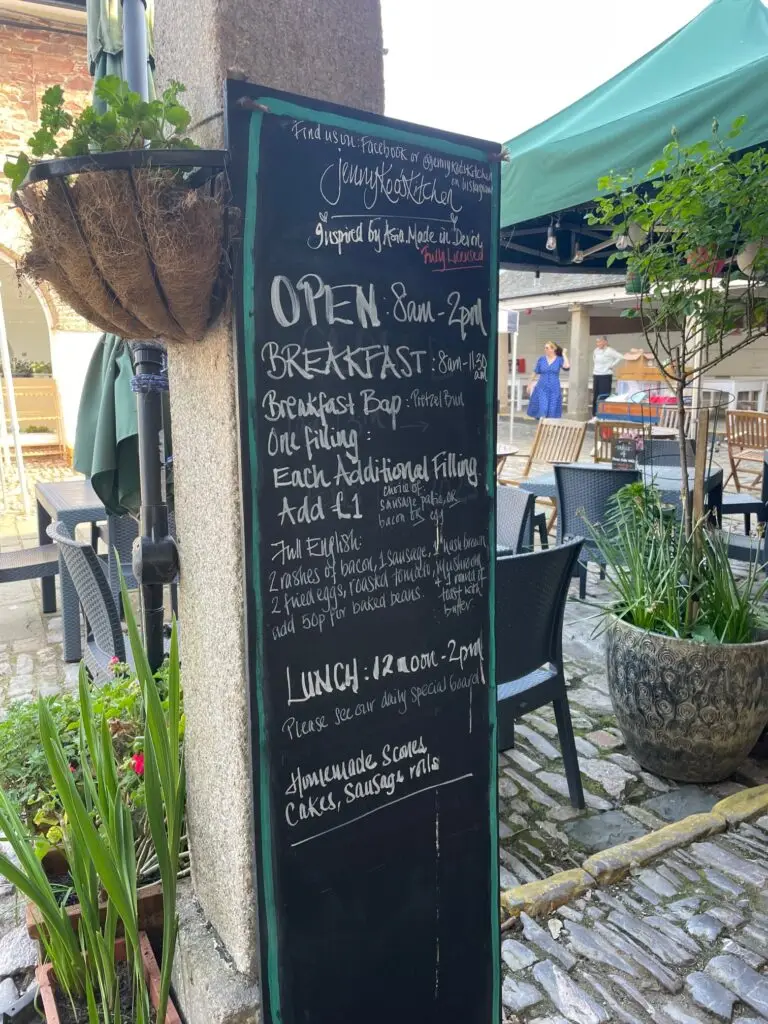 Find us on: Facebook or @jennykoo'skitchen
on Instagram
jennyKoo'sKitchen
Inspired by Asia. Made in Devon
Fully Licensed
OPEN: 8am - 2pm
BREAKFAST: 8am-11.30
am
Breakfast Bap: Pretzel Bun
One filling:
Each Additional Filling
Add £1
choice of
sausage patie, or
bacon or egg
Full English:
2 rashes of bacon, 1 sausage, 1 hash brown
2 fried eggs, roasted tomato, mushroom
add 50p for baked beans.
+ 1 round of
toast with
butter.
LUNCH: 12noon-2pm
Please see our daily special board
Homemade Scones
Cakes, Sausage rolls